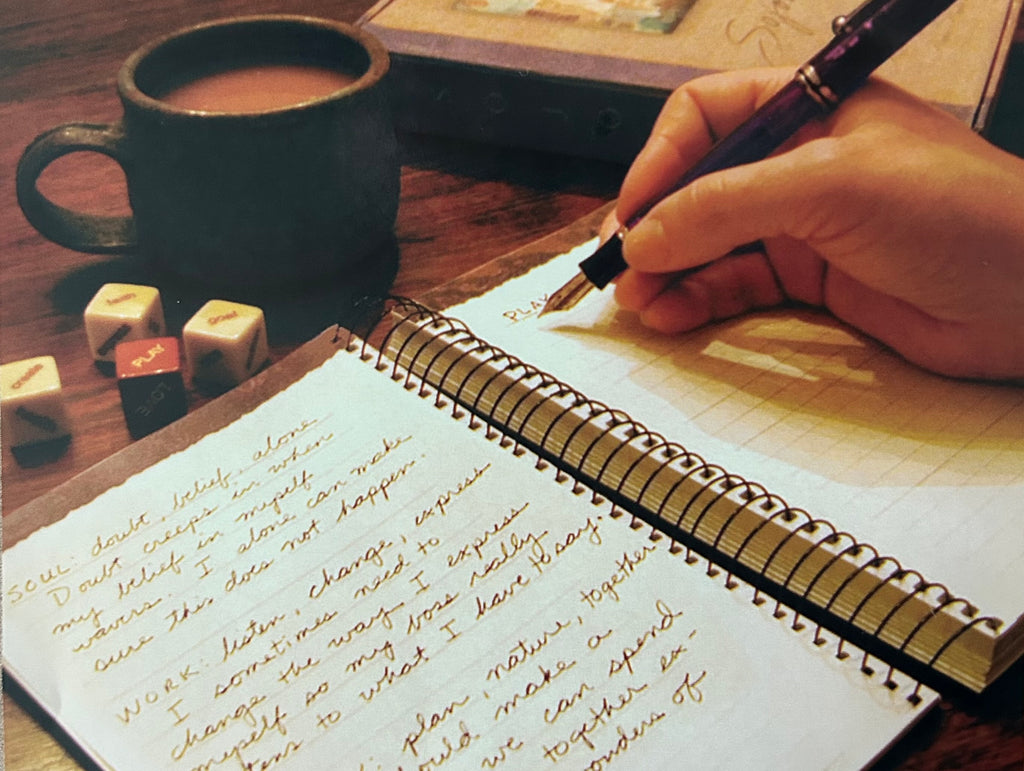 SOUL: doubt, belief, alone
Doubt creeps in when
my belief in myself
wavers. I alone can make
sure this does not happen.
WORK: listen, change, express
I sometimes need to
change the way I express
myself so my boss really
tens to what I have to say.
: plan, nature, together
ould make a
we can spend
together ex-
onders of
PLAY
PLAY
LOVE